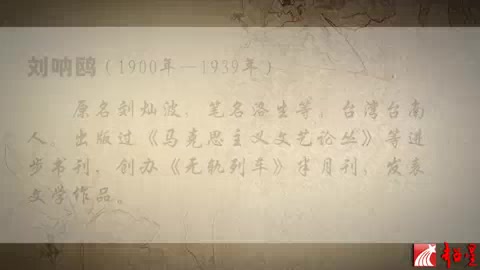 刘呐鸥（1900年—1939年）
原名刘灿波，笔名洛生等，台湾台南
人。出版过《马克思主义文艺论丛》等进
步书刊，创办《无轨列车》半月刊，发表
文学作品。